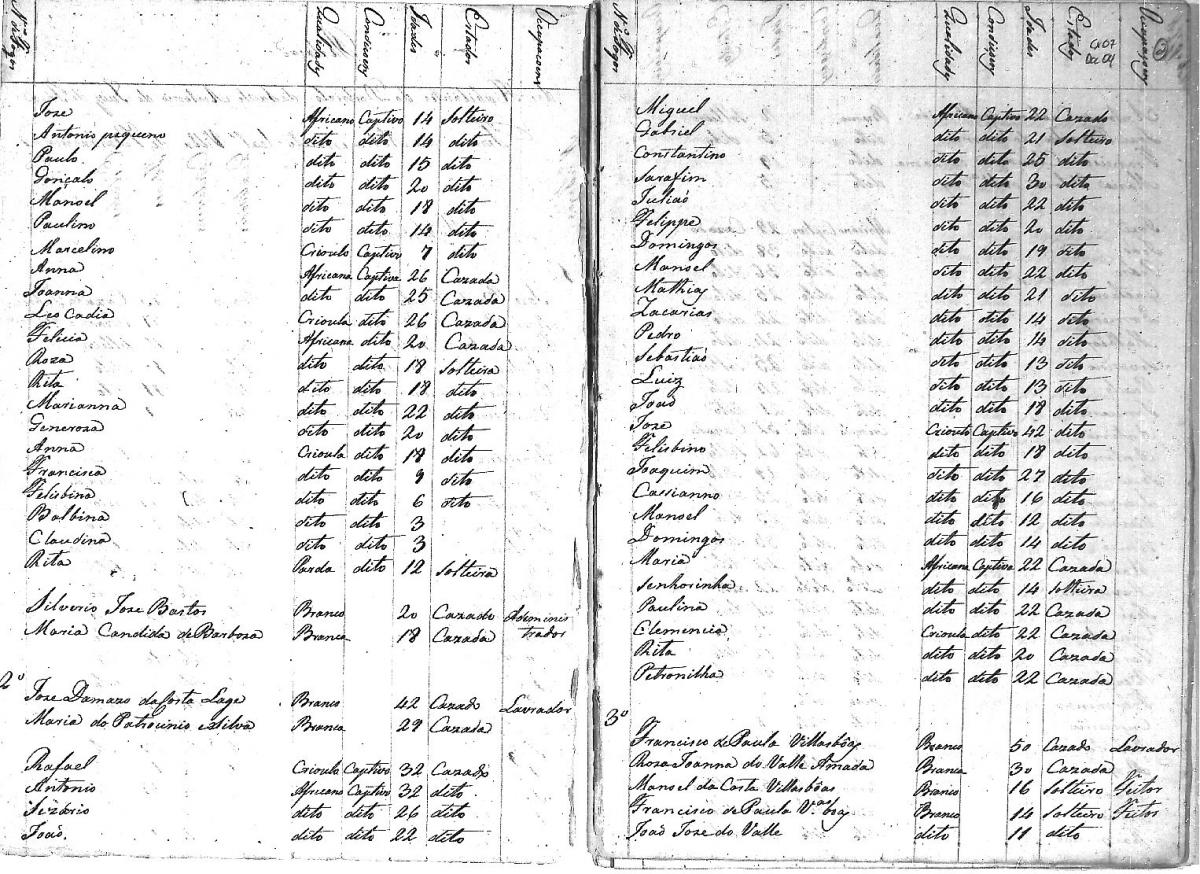 Nos dos Fogos Qualidades Condisoens Idades Estados Ocupasoens
Joze Africano Captivo 14 Solteiro
Antonio pequeno dito dito 14 dito
Paulo dito dito 15 dito
Gonçalo dito dito 20 dito
Manoel dito dito 18 dito
Paulino dito dito 14 dito
Marcelino Crioulo Captivo 7 dito
Anna Africana Captiva 26 Cazada
Joanna dito dito 25 Cazada
Leo Cadia Crioula dito 26 Cazada
Felicia Africana dito 20 Cazada
Roza dito dito 18 Solteira
Rita dito dito 18 dito
Marianna dito dito 22 dito
Generoza dito dito 20 dito
Anna Crioula dito 18 dito
Francisca dito dito 9 dito
Felisbina dito dito 6 dito
Balbina dito dito 3
Claudina dito dito 3
Rita Parda dito 12 Solteira
Silverio Joze Bastos Branco 20 Cazado Ademinis
trador
Maria Candida de Barboza Branca 18 Cazada
2º
Joze Damazo da Costa Lage Branco 42 Cazado Lavrador
Maria do Patrocinio e Silva Branca 29 Cazada
Rafael Crioulo Captivo 32 Cazado
Antonio Africano Captivo 32 dito
Sizário dito dito 26 dito
João dito dito 22 dito
Nos dos Fogos Qualidades Condisoens Idades Estados Ocupasoens
Cx07
Dc 04
Miguel Africano Captivo 22 Cazado
Gabriel dito dito 21 Solteiro
Constantino dito dito 25 dito
Sarafim dito dito 30 dito
Julião dito dito 22 dito
Felippe dito dito 20 dito
Domingos dito dito 19 dito
Manoel dito dito 22 dito
Mathias dito dito 21 dito
Zacarias dito dito 14 dito
Pedro dito dito 14 dito
Sebastião dito dito 13 dito
Luiz dito dito 13 dito
João dito dito 18 dito
Joze Crioulo Captivo 42 dito
Felisbino dito dito 18 dito
Joaquim dito dito 27 dito
Cassianno dito dito 16 dito
Manoel dito dito 12 dito
Domingos dito dito 14 dito
Maria Africana Captiva 22 Cazada
Senhorinha dito dito 14 Solteira
Paulina dito dito 22 Cazada
Clemencia Crioula dito 22 Cazada
Rita dito dito 20 Cazada
Petronilha dito dito 22 Cazada
3º
Francisco de Paula Villasbôas Branco 50 Cazado Lavrador
Roza Joanna do Valle Amada Branca 30 Cazada
Manoel da Costa Villasbôas Branco 16 Solteiro Feitor
Francisco de Paula V.as boas Branco 14 Solteiro Feitor
João Joze do Valle dito 11 dito